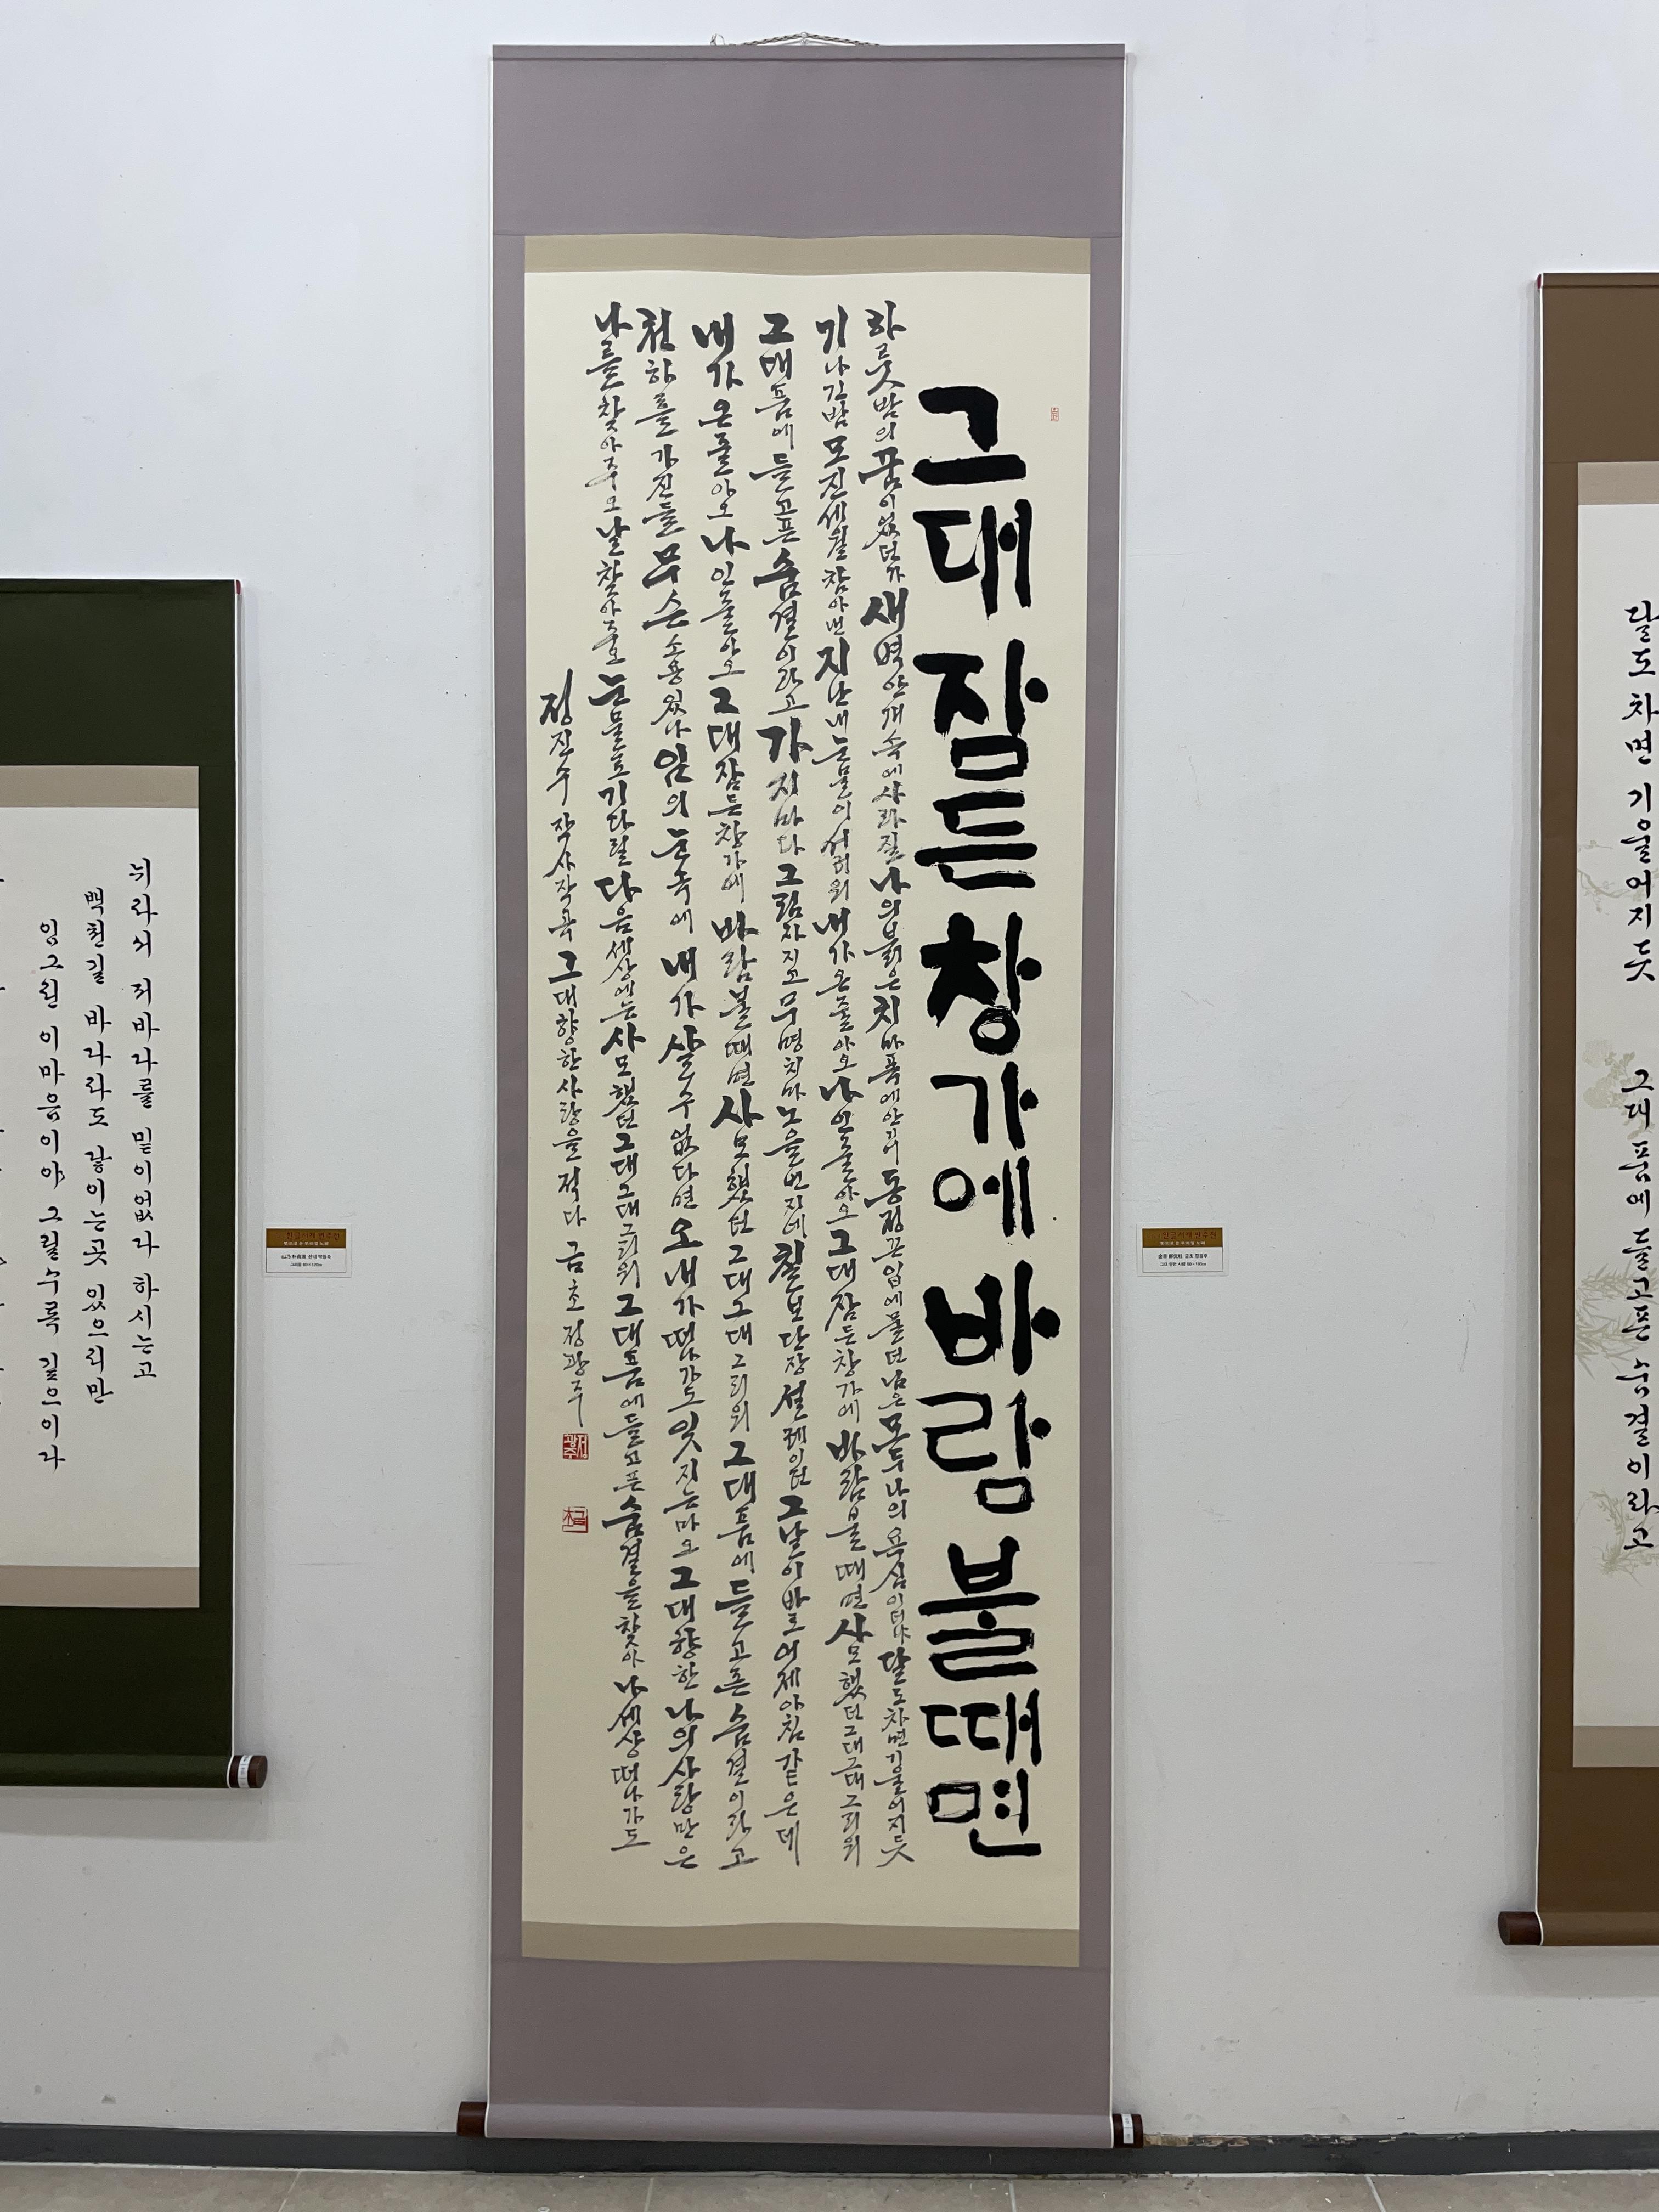 그대 잠든 창가에 바람 불 때면
하룻밤의 꿈이었던가 새벽안개 속에 사라질 나의 붉은 치마폭에 안기리 동정 끈 입에 물던 남은 모두 나의 욕심이더냐 달도 차면 기울어지듯
기나긴 밤 모진 세월 참아낸 지난 내 눈물이 서러워 내가 온 줄 아오 나인 줄 아오 그대 잠든 창가에 바람 불 때면 사모했던 그대 그대 그리워
그대 품에 들고픈 숨결이라고 가지마다 그림자 지고 무명치마 노을 번지네 칠보단장 설레이던 그날이 바로 어제 아침 같은데
내가 온 줄 아오 나인 줄 아오 그대 잠든 창가에 바람 불 때면 사모했던 그대 그대 그리워 그대 품에 들고픈 숨결이라고
천하를 가진들 무슨 소용있나 임의 눈 속에 내가 살 수 없다면 오 내가 떠나가도 잊지는 마오 그대 향한 나의 사랑만은
나를 찾아주오 날 찾아주오 눈물로 기다릴 다음 세상에는 사모했던 그대 그대 그리워 그대 품에 들고픈 숨결을 찾아 나 세상 떠나가도
정진수 작사 작곡 그대 향한 사랑을 적다 금초 정광주
뉘라서 저 바다를 밑이 없다 하시는고
백천길 바다라도 닿이는 곳 있으리만
임 그린 이 마음이야 그릴수록 깊으이다
달도 차면 기울어지듯
그대 품에 들고픈 숨결이라고